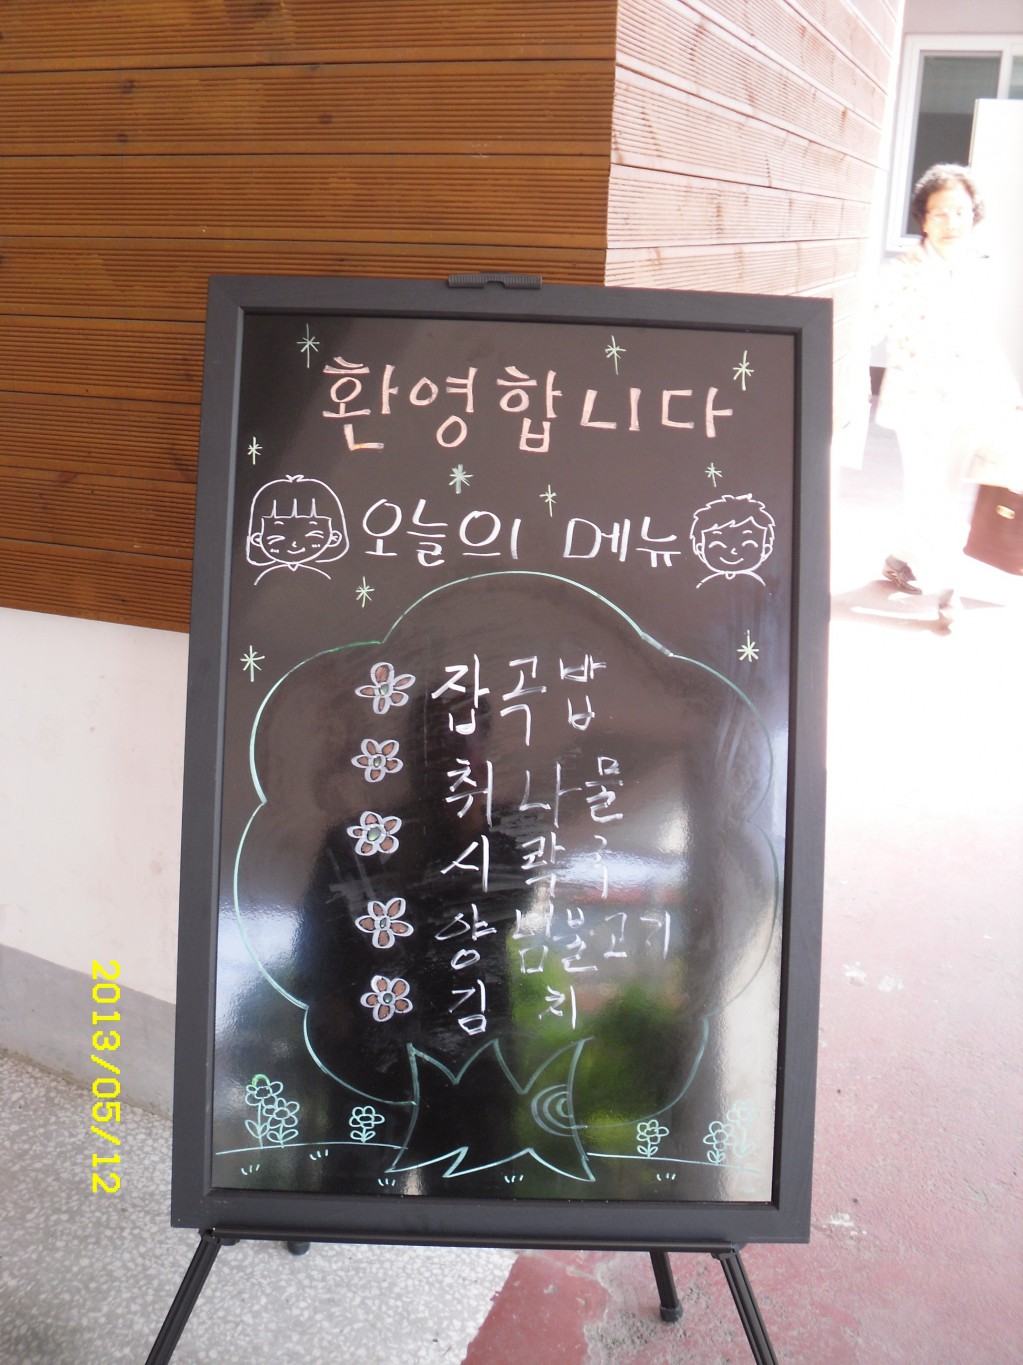 환영합니다
오늘의 메뉴
잡곡밥
취나물
시락국
양념불고기
김치
2013/05/12